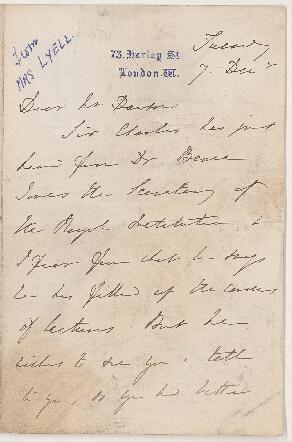 From
MRS LYELL.
73. Harley St
London. W.
Tuesday
7. Decr
Dear Mr Dawson
Sir Charles has just
heard from Dr Bence
Jones the Secretary of
the Royal Institution, &
I fear from what he says
he has filled up the course
of lectures. But he
wishes to see you & talk
to you, so you had better